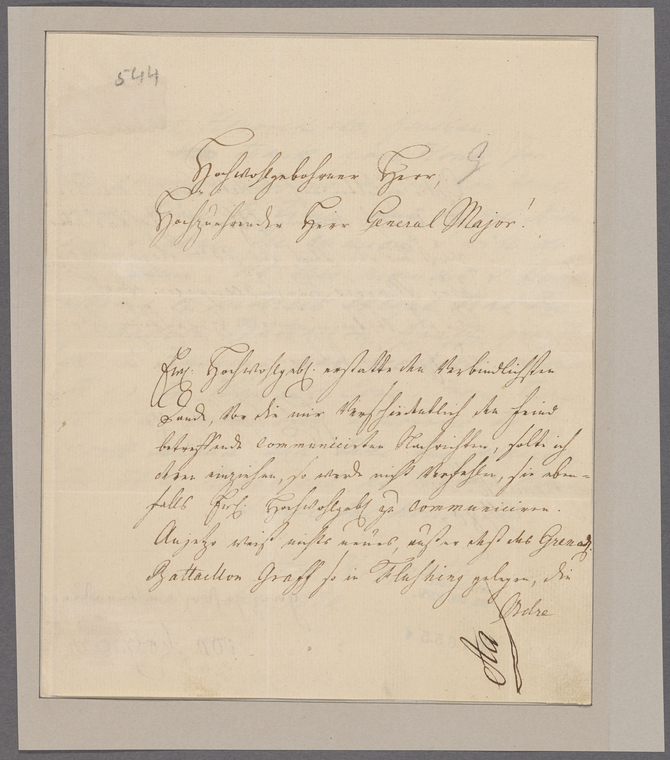 544
Hochwohlgebohrner Herr,
Hochzuehrender Herr General Major!
Ew: Hochwohlgebl: erstatte den Verbindlichsten
Danck, vor die mir Verschiedentlich den Feind
betreffende communicirten Nachrichten, solte ich
deren einziehen, so werde nicht Verfehlen, sie eben=
falls Ew: Hochwohlgebl zu communiciren.
Anjetzo weiß nichts neues, außer daß das Grenad:
Battaillon Graff so in Flushing gelegen, die
Ordre